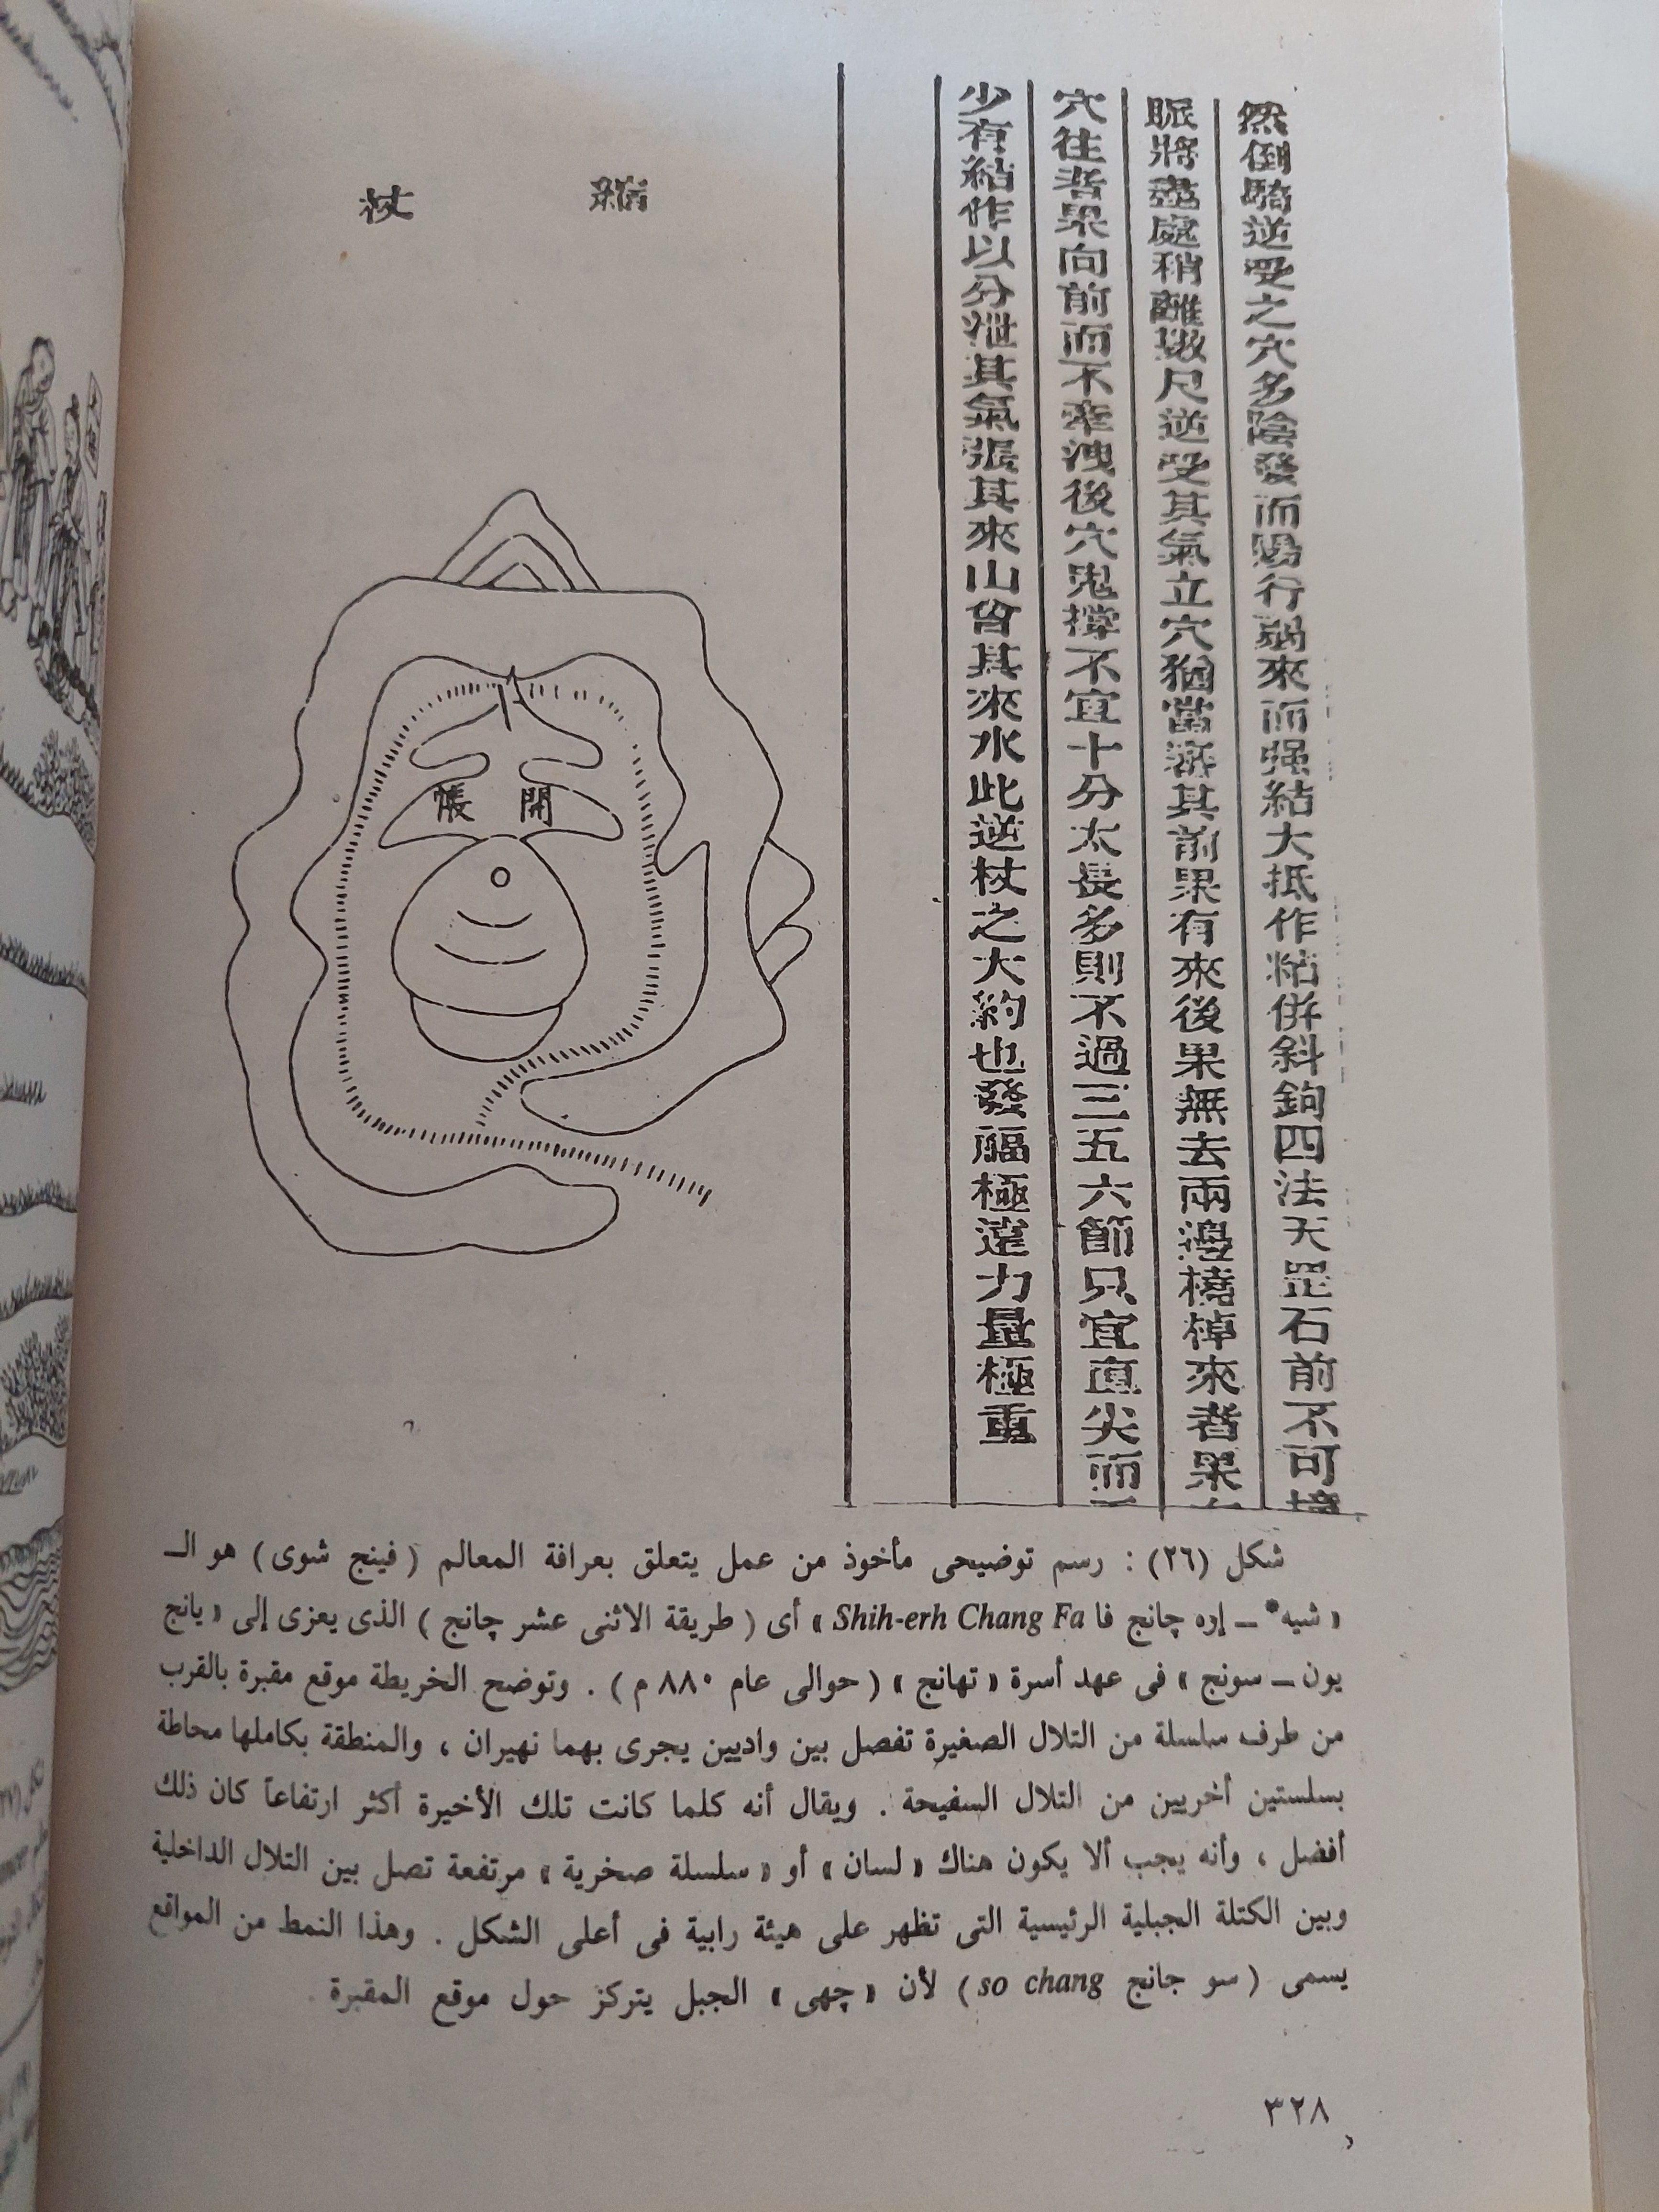 然倒騎逆受之穴多陰發而陽行弱來而强結大抵作粘併斜鉤四法天罡石前不可
脈將盡處稍離數尺逆受其氣立穴猶當漭其前果有來後果無去兩邊橈棹來者果
穴往者果向前而不牽洩後穴鬼撐不宜十分太長多則不過三五六節只宜直尖而
少有結作以分泄其氣張其來山曾其來水此逆杖之大約也發福極遠力量極重
縮 杖
開 帳
شكل (٢٦) : رسم توضيحى مأخوذ من عمل يتعلق بعرافة المعالم ( فينج شوى ) هو الـ
« شيه* ـ إره چانج فا Shih-erh Chang Fa » أى ( طريقة الاثنى عشر چانج ) الذى يعزى إلى « يانج
يون ـ سونج » فى عهد أسرة « تهانج » ( حوالى عام ٨٨٠ م ) . وتوضح الخريطة موقع مقبرة بالقرب
من طرف سلسلة من التلال الصغيرة تفصل بين واديين يجرى بهما نهيران ، والمنطقة بكاملها محاطة
بسلستين أخريين من التلال السفيحة . ويقال أنه كلما كانت تلك الأخيرة أكثر ارتفاعاً كان ذلك
أفضل ، وأنه يجب ألا يكون هناك « لسان » أو « سلسلة صخرية » مرتفعة تصل بين التلال الداخلية
وبين الكتلة الجبلية الرئيسية التى تظهر على هيئة رابية فى أعلى الشكل . وهذا النمط من المواقع
يسمى ( سو جانج so chang ) لأن « چهى » الجبل يتركز حول موقع المقبرة .
٣٢٨